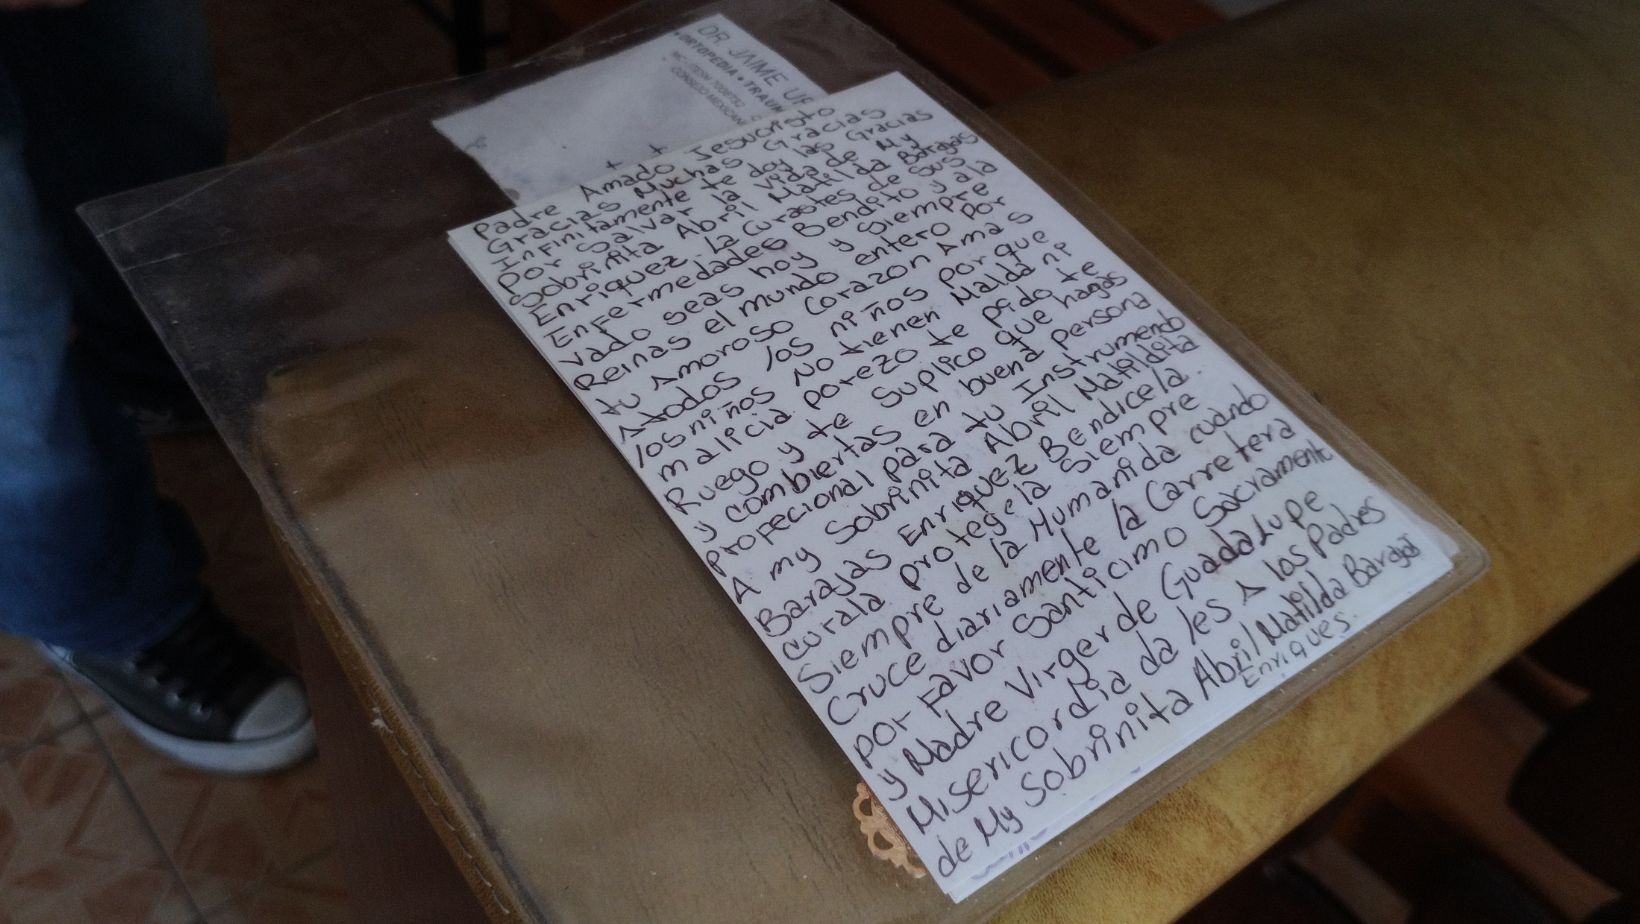 DR. JAIME UR
ORTOPEDIA TRAUM
CONSEJO MEXICAN
Padre Amado Jesucristo
Gracias Muchas Gracias
Infinitamente te doy las Gracias
Por Salvar la vida de My
Sobrinita Abril Matilda Barajas
Enriquez. La curastes de Sus
Enfermedades Bendito y ala
vado seas hoy y siempre
Reinas el mundo entero por
tu Amoroso Corazon Amas
Atodos los niños porque
los niños No tienen Malda ni
malicia porezo te pido te
Ruego y te suplico que hagas
y combiertas en buena persona
profecional para tu Instrumendo
A my Sobrinita Abril Matildita
Barajas Enriquez Bendicela.
curala protegela Siempre
Siempre de la Humanida cuando
Cruce diariamente la Carretera
por Favor Santicimo Sacramento
y Madre Virger de Guadalupe
Misericordia da les A los Padres
de My Sobrinita Abril Matilda Barajas
Enriques.